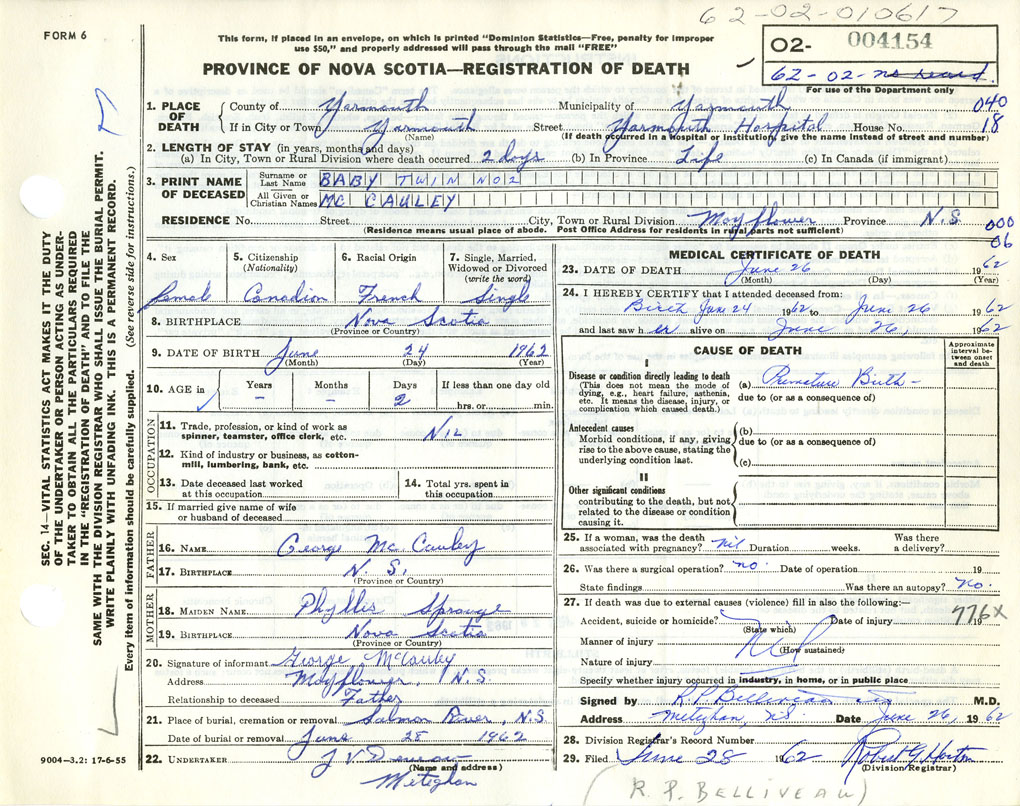 62-02-010617
FORM 6
This form, if placed in an envelope, on which is printed "Dominion Statistics—Free, penalty for improper
use $50," and properly addressed will pass through the mail "FREE"
02- 004154
62-02-no record.
For use of the Department only
PROVINCE OF NOVA SCOTIA—REGISTRATION OF DEATH
1. PLACE OF DEATH
County of Yarmouth Municipality of Yarmouth 040
If in City or Town Yarmouth Street Yarmouth Hospital House No. 18
(Name) (If death occurred in a hospital or institution, give the name instead of street and number)
2. LENGTH OF STAY (in years, months and days)
(a) In City, Town or Rural Division where death occurred 2 days (b) In Province Life (c) In Canada (if immigrant)
3. PRINT NAME OF DECEASED
Surname or Last Name BABY TWIN NO2
All Given or Christian Names MC CAULEY
RESIDENCE No. Street City, Town or Rural Division Mayflower Province N.S. 000
(Residence means usual place of abode. Post Office Address for residents in rural parts not sufficient) 06
4. Sex 5. Citizenship (Nationality) 6. Racial Origin 7. Single, Married, Widowed or Divorced (write the word)
Female Canadian French Single
8. BIRTHPLACE Nova Scotia
(Province or Country)
9. DATE OF BIRTH June 24 1962
(Month) (Day) (Year)
10. AGE in Years Months Days If less than one day old
- - 2 hrs. or min.
OCCUPATION
11. Trade, profession, or kind of work as
spinner, teamster, office clerk, etc. Nil
12. Kind of industry or business, as cotton-
mill, lumbering, bank, etc.
13. Date deceased last worked
at this occupation
14. Total yrs. spent in
this occupation
15. If married give name of wife
or husband of deceased
FATHER
16. NAME George Mc Cauley
17. BIRTHPLACE N.S.
(Province or Country)
MOTHER
18. MAIDEN NAME Phyllis
19. BIRTHPLACE Nova Scotia
(Province or Country)
20. Signature of informant George McCauley
Address Mayflower, N.S.
Relationship to deceased Father
21. Place of burial, cremation or removal Salmon River, N.S.
Date of burial or removal June 28 1962
22. UNDERTAKER J V
(Name and address)
Meteghan
MEDICAL CERTIFICATE OF DEATH
23. DATE OF DEATH June 26 1962
(Month) (Day) (Year)
24. I HEREBY CERTIFY that I attended deceased from:
Birth Jun 24 1962 to June 26 1962
and last saw her alive on June 26, 1962
CAUSE OF DEATH
Approximate interval between onset and death
I
Disease or condition directly leading to death
(This does not mean the mode of
dying, e.g., heart failure, asthenia,
etc. It means the disease, injury, or
complication which caused death.)
(a) Premature Birth -
due to (or as a consequence of)
Antecedent causes
Morbid conditions, if any, giving
rise to the above cause, stating the
underlying condition last.
(b)
due to (or as a consequence of)
(c)
II
Other significant conditions
contributing to the death, but not
related to the disease or condition
causing it.
25. If a woman, was the death
associated with pregnancy? nil Duration weeks. Was there a delivery?
26. Was there a surgical operation? no. Date of operation 19
State findings Was there an autopsy? No.
27. If death was due to external causes (violence) fill in also the following:—
Accident, suicide or homicide? Date of injury 19
(State which)
776X
Manner of injury
(How sustained)
Nature of injury
Specify whether injury occurred in industry, in home, or in public place
Signed by R.P. Belliveau M.D.
Address Meteghan, N.S. Date June 26, 1962
28. Division Registrar's Record Number
29. Filed June 28 1962 Robert G. Horton
(Division Registrar)
(R. P. BELLIVEAU)
9004—3.2: 17-6-55
SEC. 14—VITAL STATISTICS ACT MAKES IT THE DUTY
OF THE UNDERTAKER OR PERSON ACTING AS UNDER-
TAKER TO OBTAIN ALL THE PARTICULARS REQUIRED
IN THE "REGISTRATION OF DEATH" AND TO FILE THE
SAME WITH THE DIVISION REGISTRAR WHO SHALL ISSUE THE BURIAL PERMIT.
WRITE PLAINLY WITH UNFADING INK. THIS IS A PERMANENT RECORD.
Every item of information should be carefully supplied. (See reverse side for instructions.)